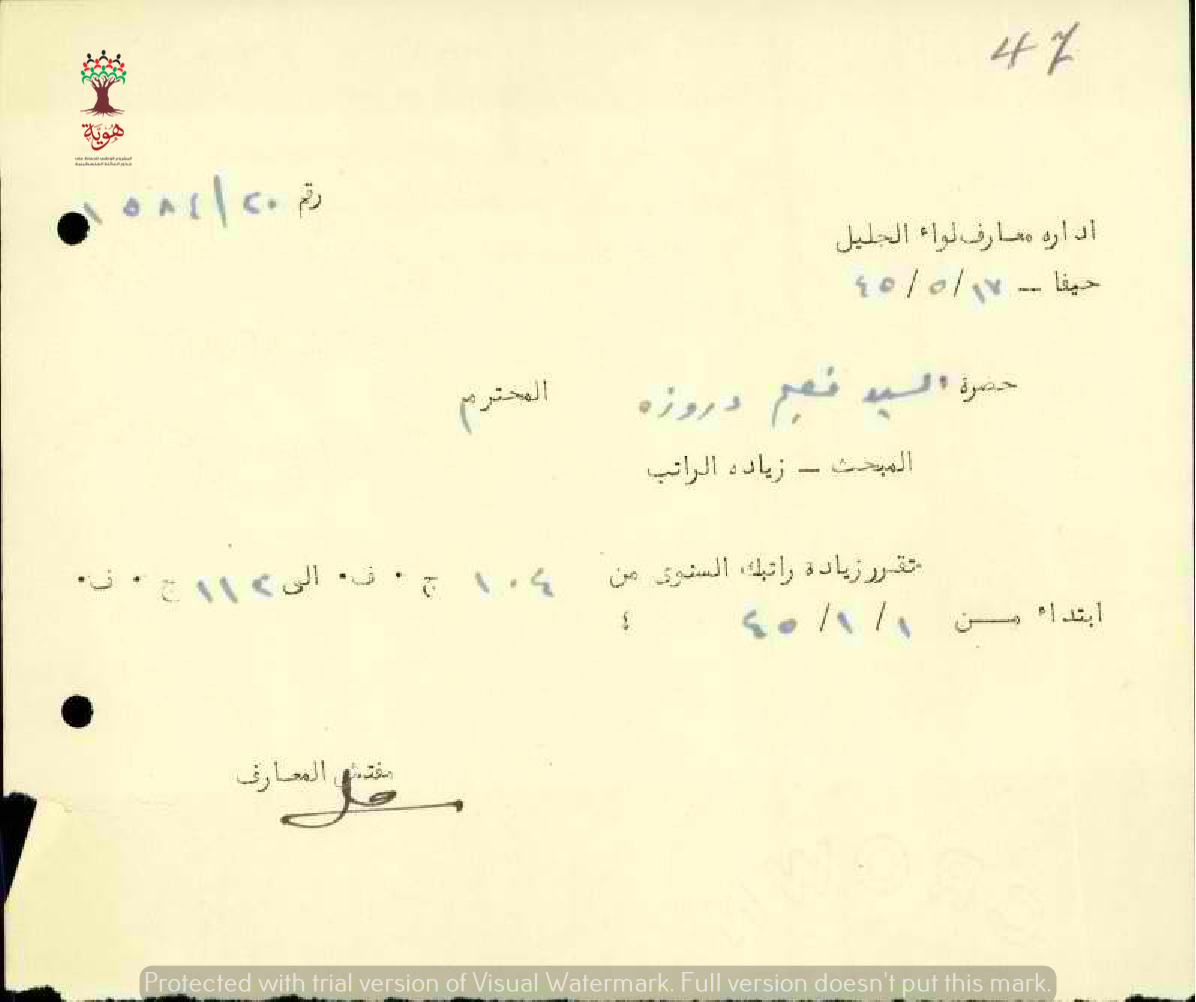 47
هوية
رقم ٢٠/١٥٨٤
اداره معارف لواء الجليل
حيفا — ١٧/٥/٤٥
حضرة السيد فهيم دروزه المحترم
المبحث — زياده الراتب
تقرر زيادة راتبك السنوى من ١٠٤ ج ٠ ف٠ الى ١١٢ ج ٠ ف٠
ابتداء من ١/١/٤٥ ٤
مفتش المعارف
Protected with trial version of Visual Watermark. Full version doesn't put this mark.